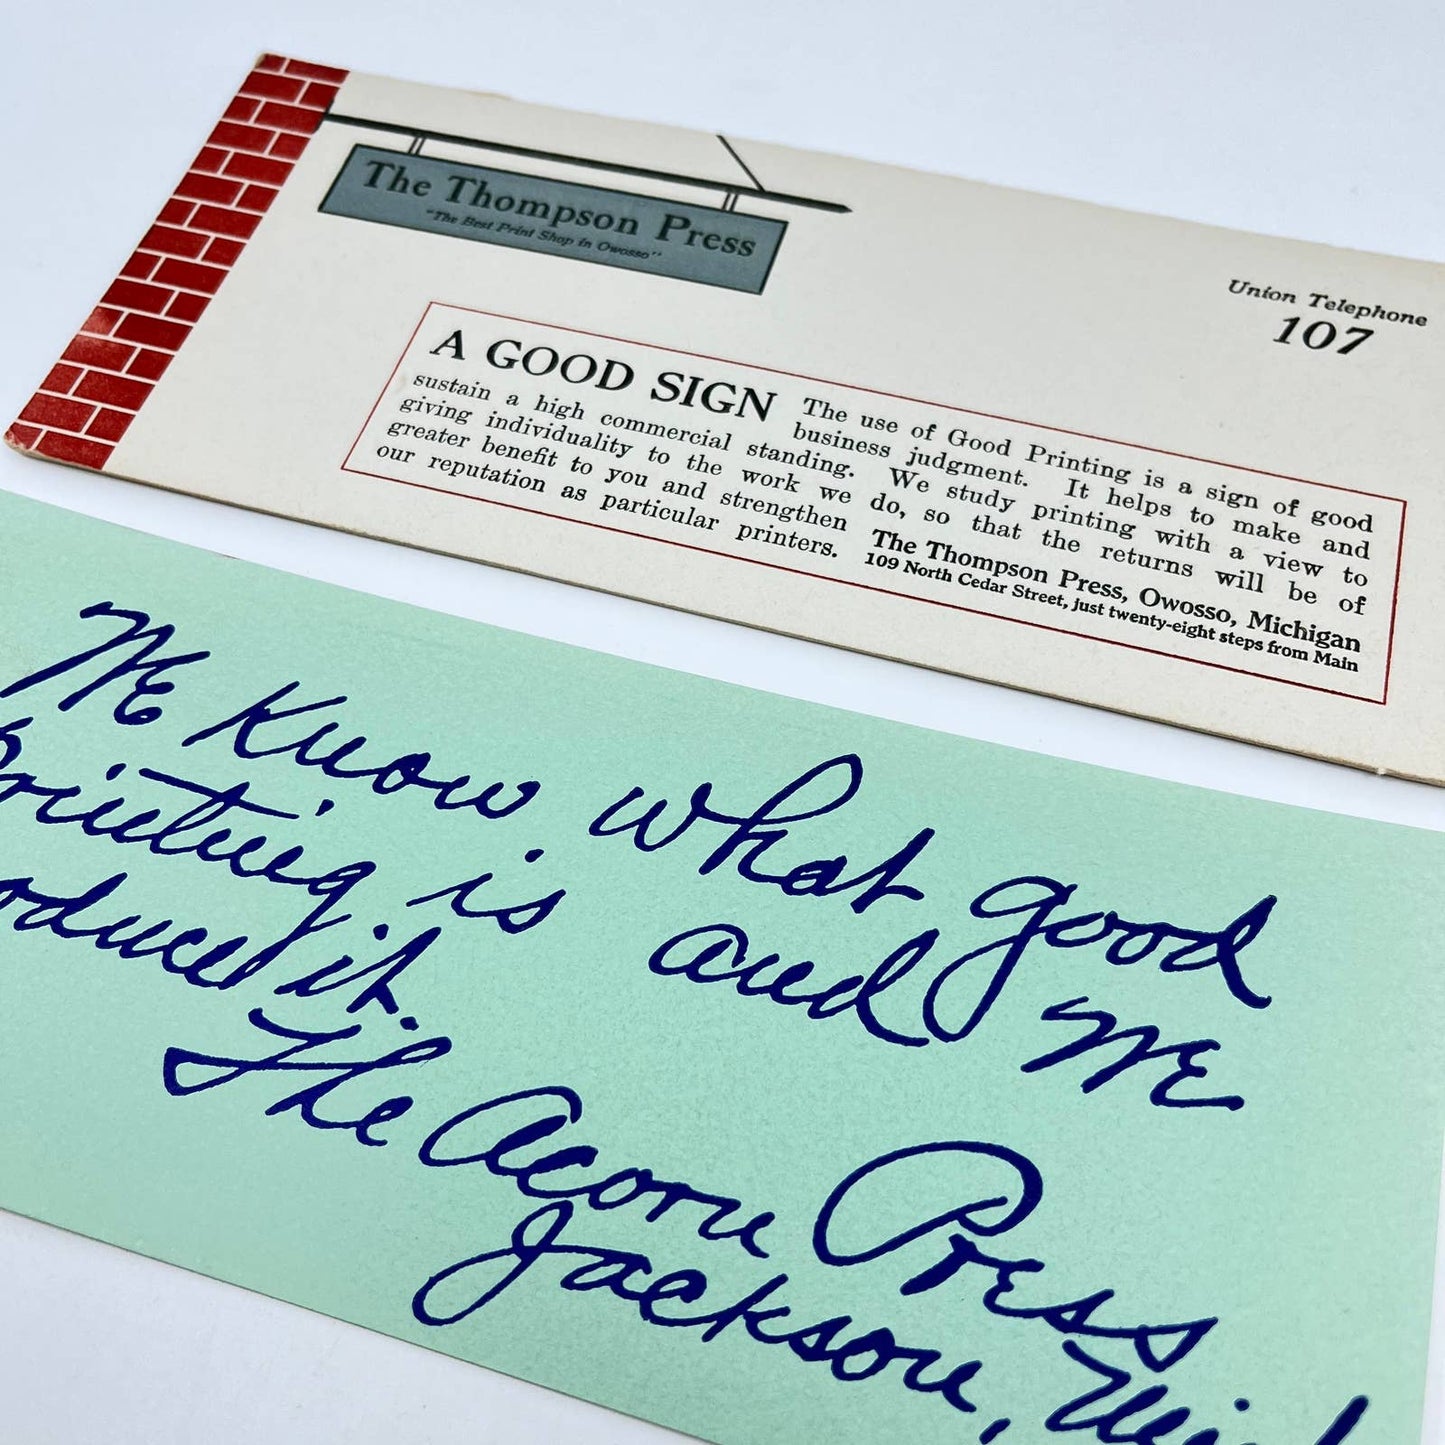 The Thompson Press
"The Best Print Shop in Owosso"
Union Telephone
107
A GOOD SIGN The use of Good Printing is a sign of good
business judgment. It helps to make and
sustain a high commercial standing. We study printing with a view to
giving individuality to the work we do, so that the returns will be of
greater benefit to you and strengthen
our reputation as particular printers.
The Thompson Press, Owosso, Michigan
109 North Cedar Street, just twenty-eight steps from Main
We Know what good
Printing is and we
oduce it.
The Acorn Press
Jackson, Mich